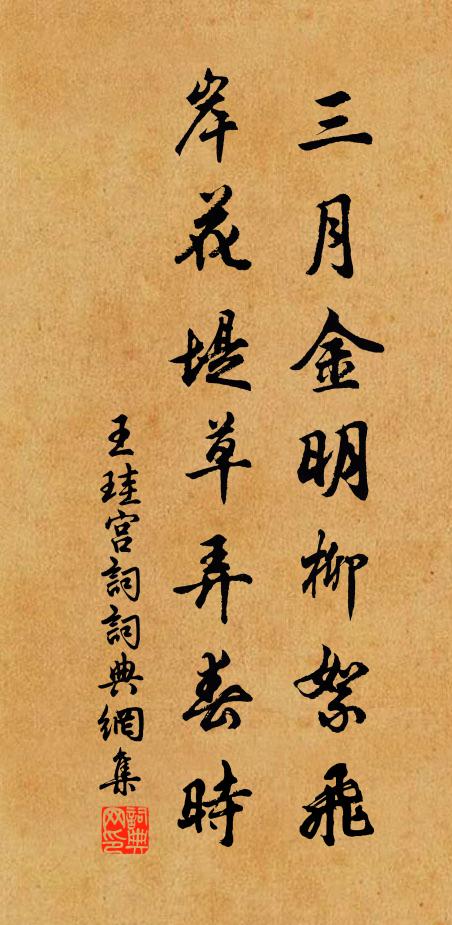 三月金明柳絮飛
岸花堤草弄春時
王珪宮詞詞典網集
詞典網印